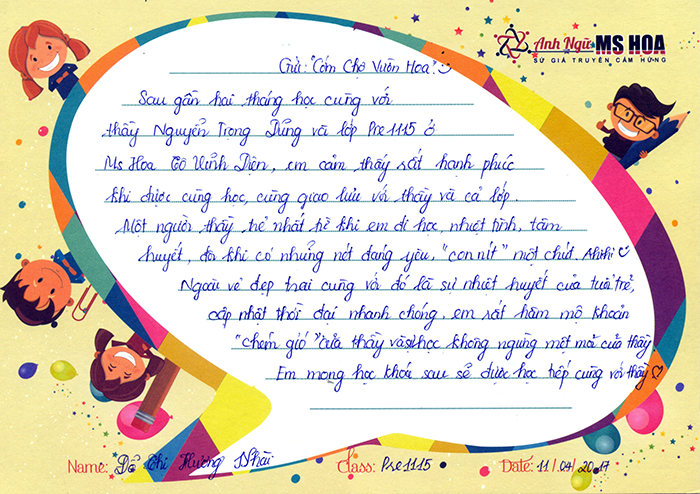 Anh Ngữ MS HOA
SỨ GIẢ TRUYỀN CẢM HỨNG
Gửi: "Cốm Chợ Vườn Hoa".
Sau gần hai tháng học cùng với
thầy Nguyễn Trọng Dũng và lớp Pre1115 ở
Ms Hoa Tô Vĩnh Diện, em cảm thấy rất hạnh phúc
khi được cùng học, cùng giao lưu với thầy và cả lớp.
Một người thầy trẻ nhất từ khi em đi học, nhiệt tình, tâm
huyết, đôi khi có những nét đáng yêu, "con nít" một chút. Ahihi
Ngoài vẻ đẹp trai cùng với đó là sự nhiệt huyết của tuổi trẻ,
cập nhật thời đại nhanh chóng, em rất hâm mộ khoản
"chém gió" của thầy và sự học không ngừng mệt mỏi của thầy
Em mong học khoá sau sẽ được học tiếp cùng với thầy
Name: Đỗ Thị Hương Nhài Class: Pre1115 Date: 11/04/2017